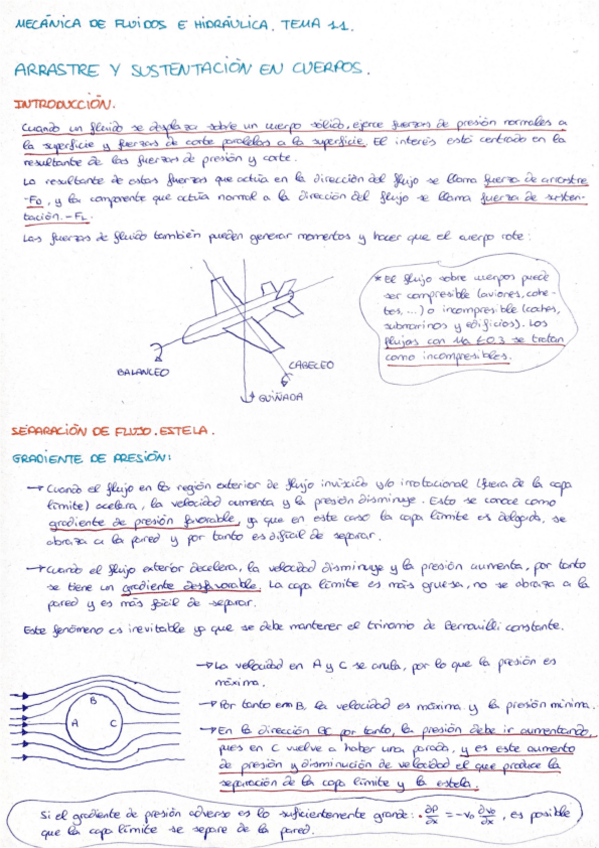 MECÁNICA DE FLUIDOS E HIDRÁULICA. TEMA 11.
ARRASTRE Y SUSTENTACIÓN EN CUERPOS.
INTRODUCCIÓN.
Cuando un fluido se desplaza sobre un cuerpo sólido, ejerce fuerzas de presión normales a
la superficie y fuerzas de corte paralelas a la superficie. El interés está centrado en la
resultante de las fuerzas de presión y corte.
La resultante de estas fuerzas que actúa en la dirección del flujo se llama fuerza de arrastre
-FD, y la componente que actúa normal a la dirección del flujo se llama fuerza de susten-
tación. -FL.
Las fuerzas de fluido también pueden generar momentos y hacer que el cuerpo rote:
* El flujo sobre cuerpos puede
ser compresible (aviones, cohe-
tes, ...) o incompresible (coches,
submarinos y edificios). Los
flujos con Ma < 0.3 se tratan
como incompresibles.
BALANCEO
CABECEO
GUIÑADA
SEPARACIÓN DE FLUJO. ESTELA.
GRADIENTE DE PRESIÓN:
→ Cuando el flujo en la región exterior de flujo inviscido y/o irrotacional (fuera de la capa
límite) acelera, la velocidad aumenta y la presión disminuye. Esto se conoce como
gradiente de presión favorable, ya que en este caso la capa límite es delgada, se
abraza a la pared y por tanto es difícil de separar.
→ Cuando el flujo exterior decelera, la velocidad disminuye y la presión aumenta, por tanto
se tiene un gradiente desfavorable. La capa límite es más gruesa, no se abraza a la
pared y es más fácil de separar.
Este fenómeno es inevitable ya que se debe mantener el trinomio de Bernouilli constante.
A B C
→ La velocidad en A y C se anula, por lo que la presión es
máxima.
→ Por tanto en B, la velocidad es máxima y la presión mínima.
→ En la dirección BC por tanto, la presión debe ir aumentando,
pues en C vuelve a haber una parada, y es este aumento
de presión y disminución de velocidad el que produce la
separación de la capa límite y la estela.
Si el gradiente de presión adverso es lo suficientemente grande: ∂P/∂x = -v₀ ∂v₀/∂x, es posible
que la capa límite se separe de la pared.